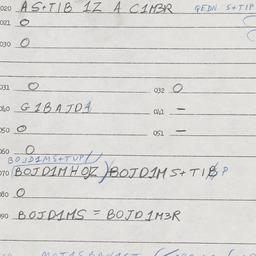 020 A S+TIB 1Z A C1M3R GEDN S+TIP
021 O
030 O
031 O 032 O
040 G1BAJD4 041 -
050 O 051 -
060 O
BOJD1MS+TUP//
070 (BOJD1MHOJZ) BOJD1M S+TIB P
080 O
090 BOJD1MS = BOJD1M3R